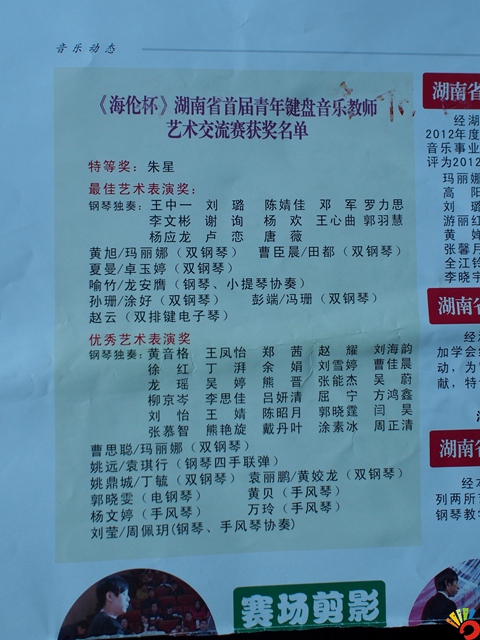 音乐动态
《海伦杯》湖南省首届青年键盘音乐教师
艺术交流赛获奖名单
特等奖：朱星
最佳艺术表演奖：
钢琴独奏：王中一 刘璐 陈婧佳 邓军 罗力思
李文彬 谢询 杨欢 王心曲 郭羽慧
杨应龙 卢恋 唐薇
黄旭/玛丽娜（双钢琴） 曹臣晨/田都（双钢琴）
夏曼/卓玉婷（双钢琴）
喻竹/龙安膺（钢琴、小提琴协奏）
孙珊/涂好（双钢琴） 彭端/冯珊（双钢琴）
赵云（双排键电子琴）
优秀艺术表演奖
钢琴独奏：黄音格 王凤怡 郑茜 赵耀 刘海韵
徐红 丁湃 余娟 刘雪婷 曹佳晨
龙瑶 吴婷 熊晋 张能杰 吴蔚
柳京岑 李思佳 吕妍清 屈宁 方鸿鑫
刘怡 王婧 陈昭月 郭晓霆 闫昊
张慕智 熊艳旋 戴丹叶 涂素冰 周正清
曹思聪/玛丽娜（双钢琴）
姚远/袁琪行（钢琴四手联弹）
姚鼎城/丁毓（双钢琴） 袁丽鹏/黄姣龙（双钢琴）
郭晓雯（电钢琴） 黄贝（手风琴）
杨文婷（手风琴） 万玲（手风琴）
刘莹/周佩玥(钢琴、手风琴协奏)
赛场剪影
湖南省
经湖
2012年度
音乐事业
评为2012
玛丽娜
高阳
刘璐
游丽红
黄
张馨月
全江
李晓宇
湖南省
经
加学会组
动，为
献，特
湖南省
经本
列两所
钢琴教学